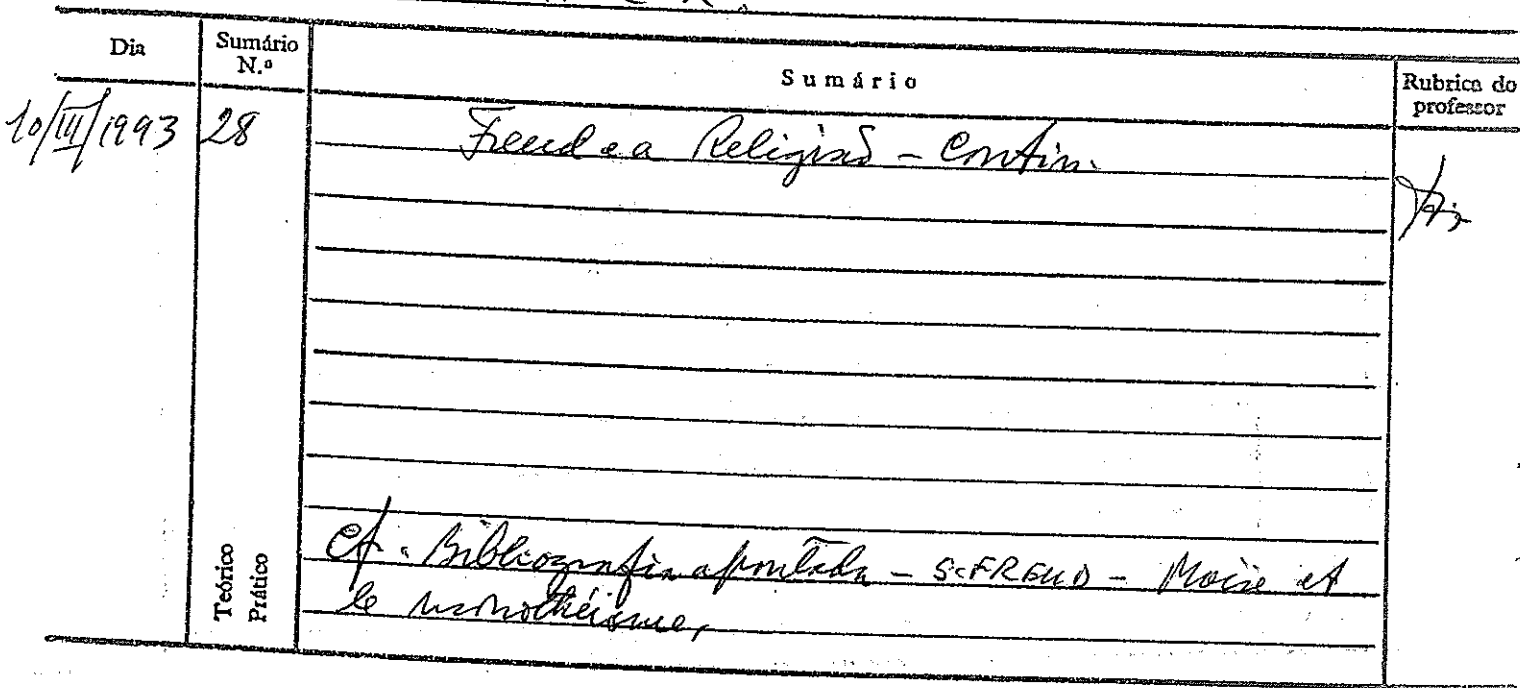 Dia
Sumário N.º
Sumário
Rubrica do professor
10/III/1993
28
Freud e a Religião - Contin.
Teórico
Prático
Cf. Bibliografia apontada - S. FREUD - Moïse et
le monothéisme,